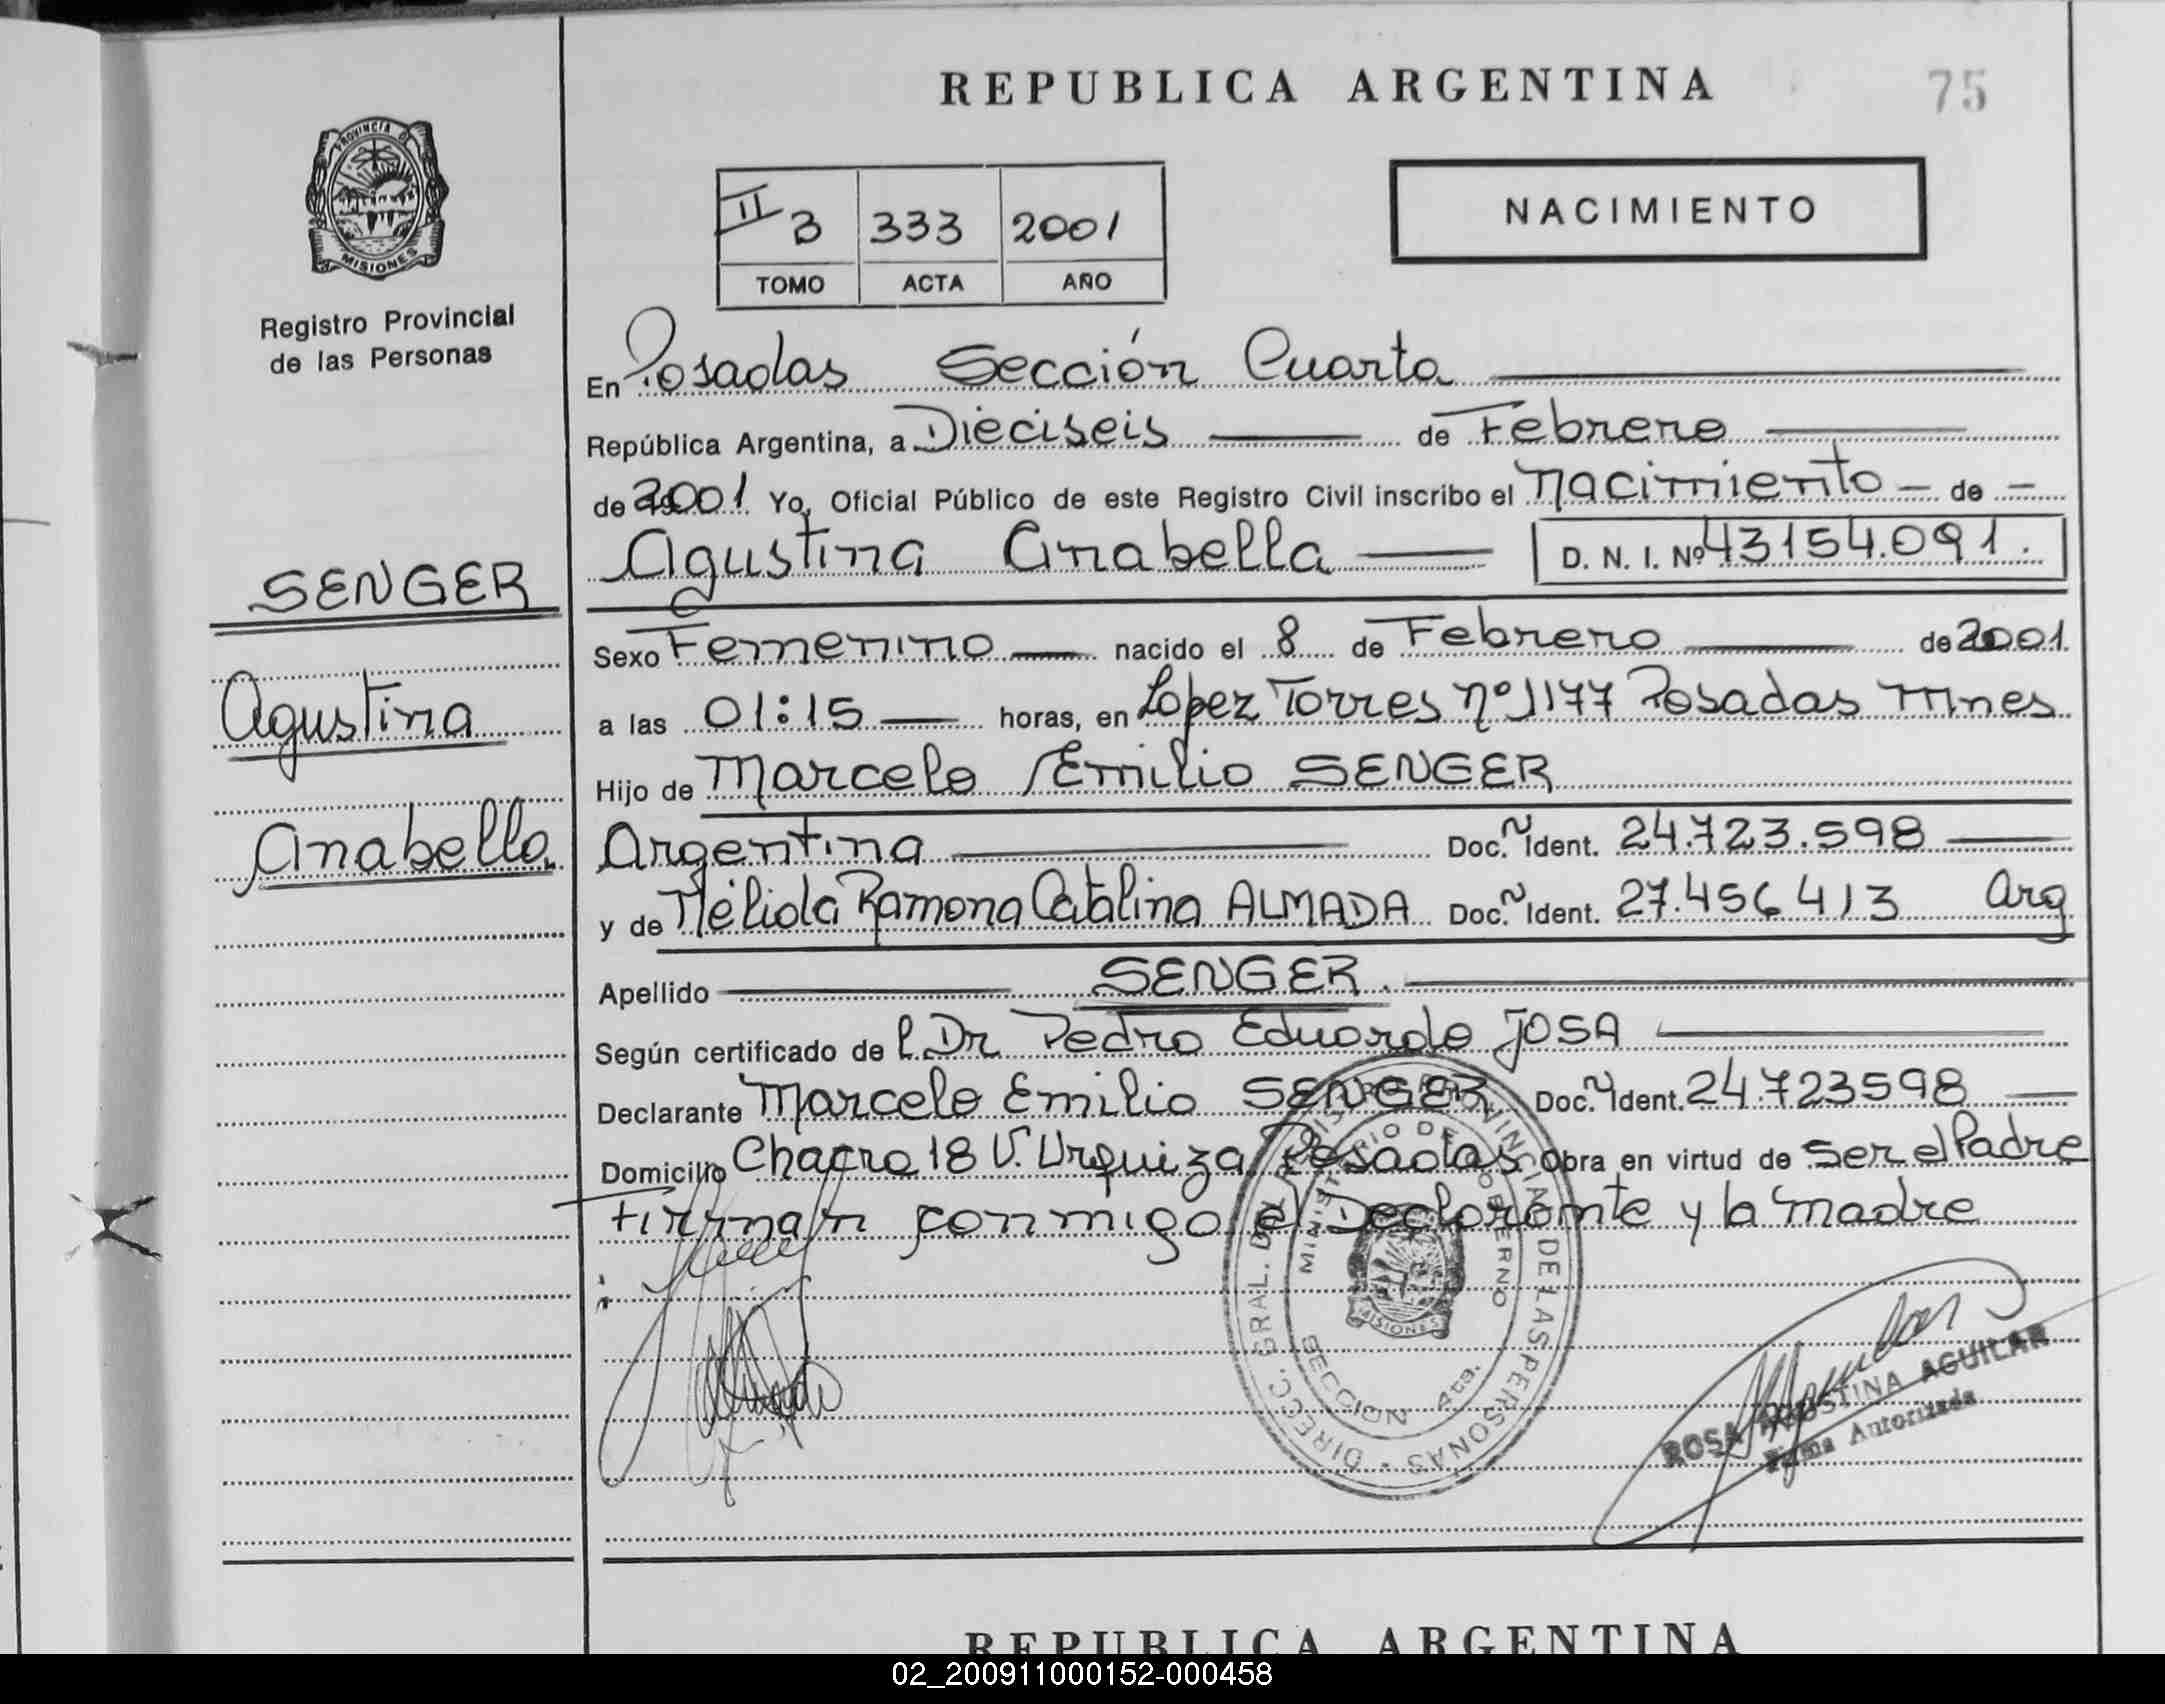 REPUBLICA ARGENTINA
75
PROVINCIA DE
MISIONES
Registro Provincial
de las Personas
II 3 333 2001
TOMO ACTA AÑO
NACIMIENTO
En Posadas Sección Cuarta
República Argentina, a Dieciseis de Febrero
de 2001 Yo, Oficial Público de este Registro Civil inscribo el Nacimiento de
Agustina Anabella D. N. I. Nº 43154.091.
SENGER
Agustina
Anabella
Sexo Femenino nacido el 8 de Febrero de 2001
a las 01:15 horas, en Lopez Torres nº 1177 Posadas Mnes
Hijo de Marcelo Emilio SENGER
Argentina Doc. Ident. 24.723.598
y de Nélida Ramona Catalina ALMADA Doc. Ident. 27.456413 Arg
Apellido SENGER.
Según certificado de l Dr Pedro Eduardo JOSA
Declarante Marcelo Emilio SENGER Doc. Ident. 24.723598
Domicilio Chacra 18 V. Urquiza Posadas Obra en virtud de Ser el Padre
Firman conmigo el Declarante y la Madre
DIRECC. GRAL. DEL REGISTRO PROVINCIAL DE LAS PERSONAS
MINISTERIO DE GOBIERNO
MISIONES
SECCION 4ta.
ROSA AGUSTINA AGUILAR
Firma Autorizada
REPUBLICA ARGENTINA
02_200911000152-000458